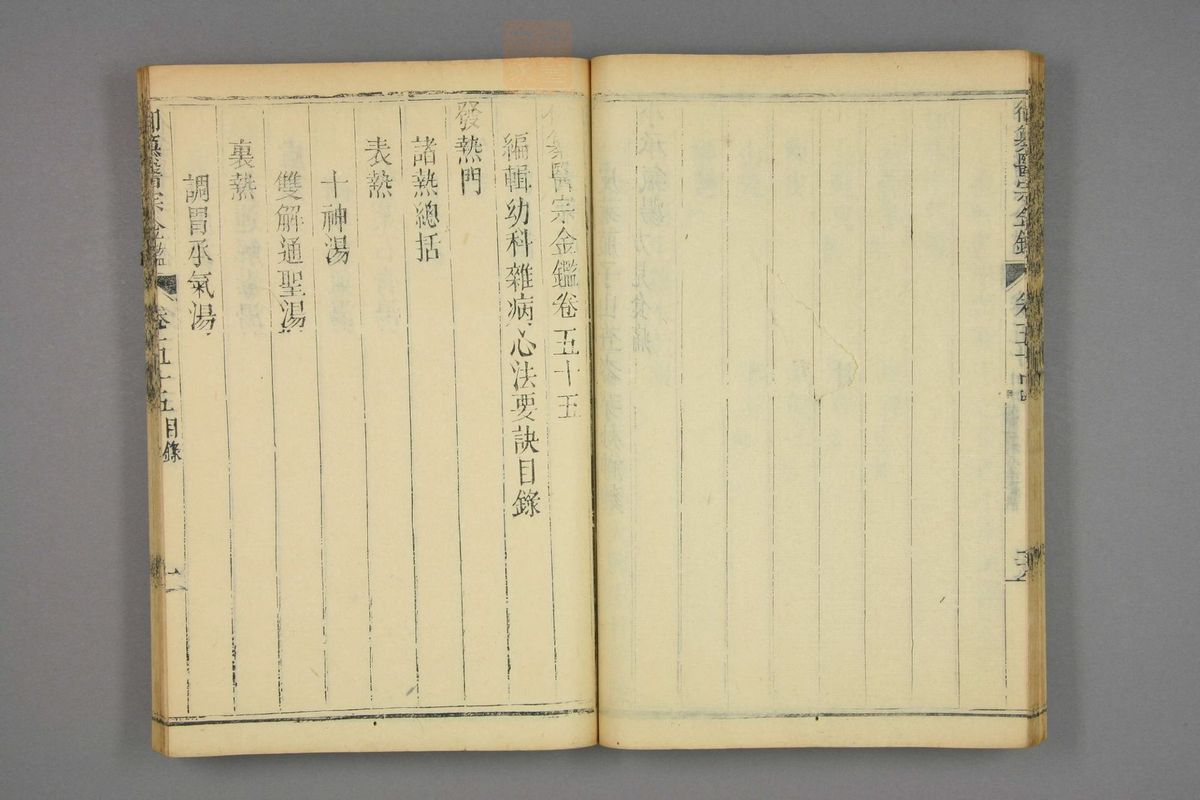 御纂醫宗金鑑
卷五十四
御纂醫宗金鑑卷五十五
編輯幼科雜病心法要訣目錄
發熱門
諸熱總括
表熱
十神湯
雙解通聖湯
裏熱
調胃承氣湯
御纂醫宗金鑑
卷五十五目錄
一